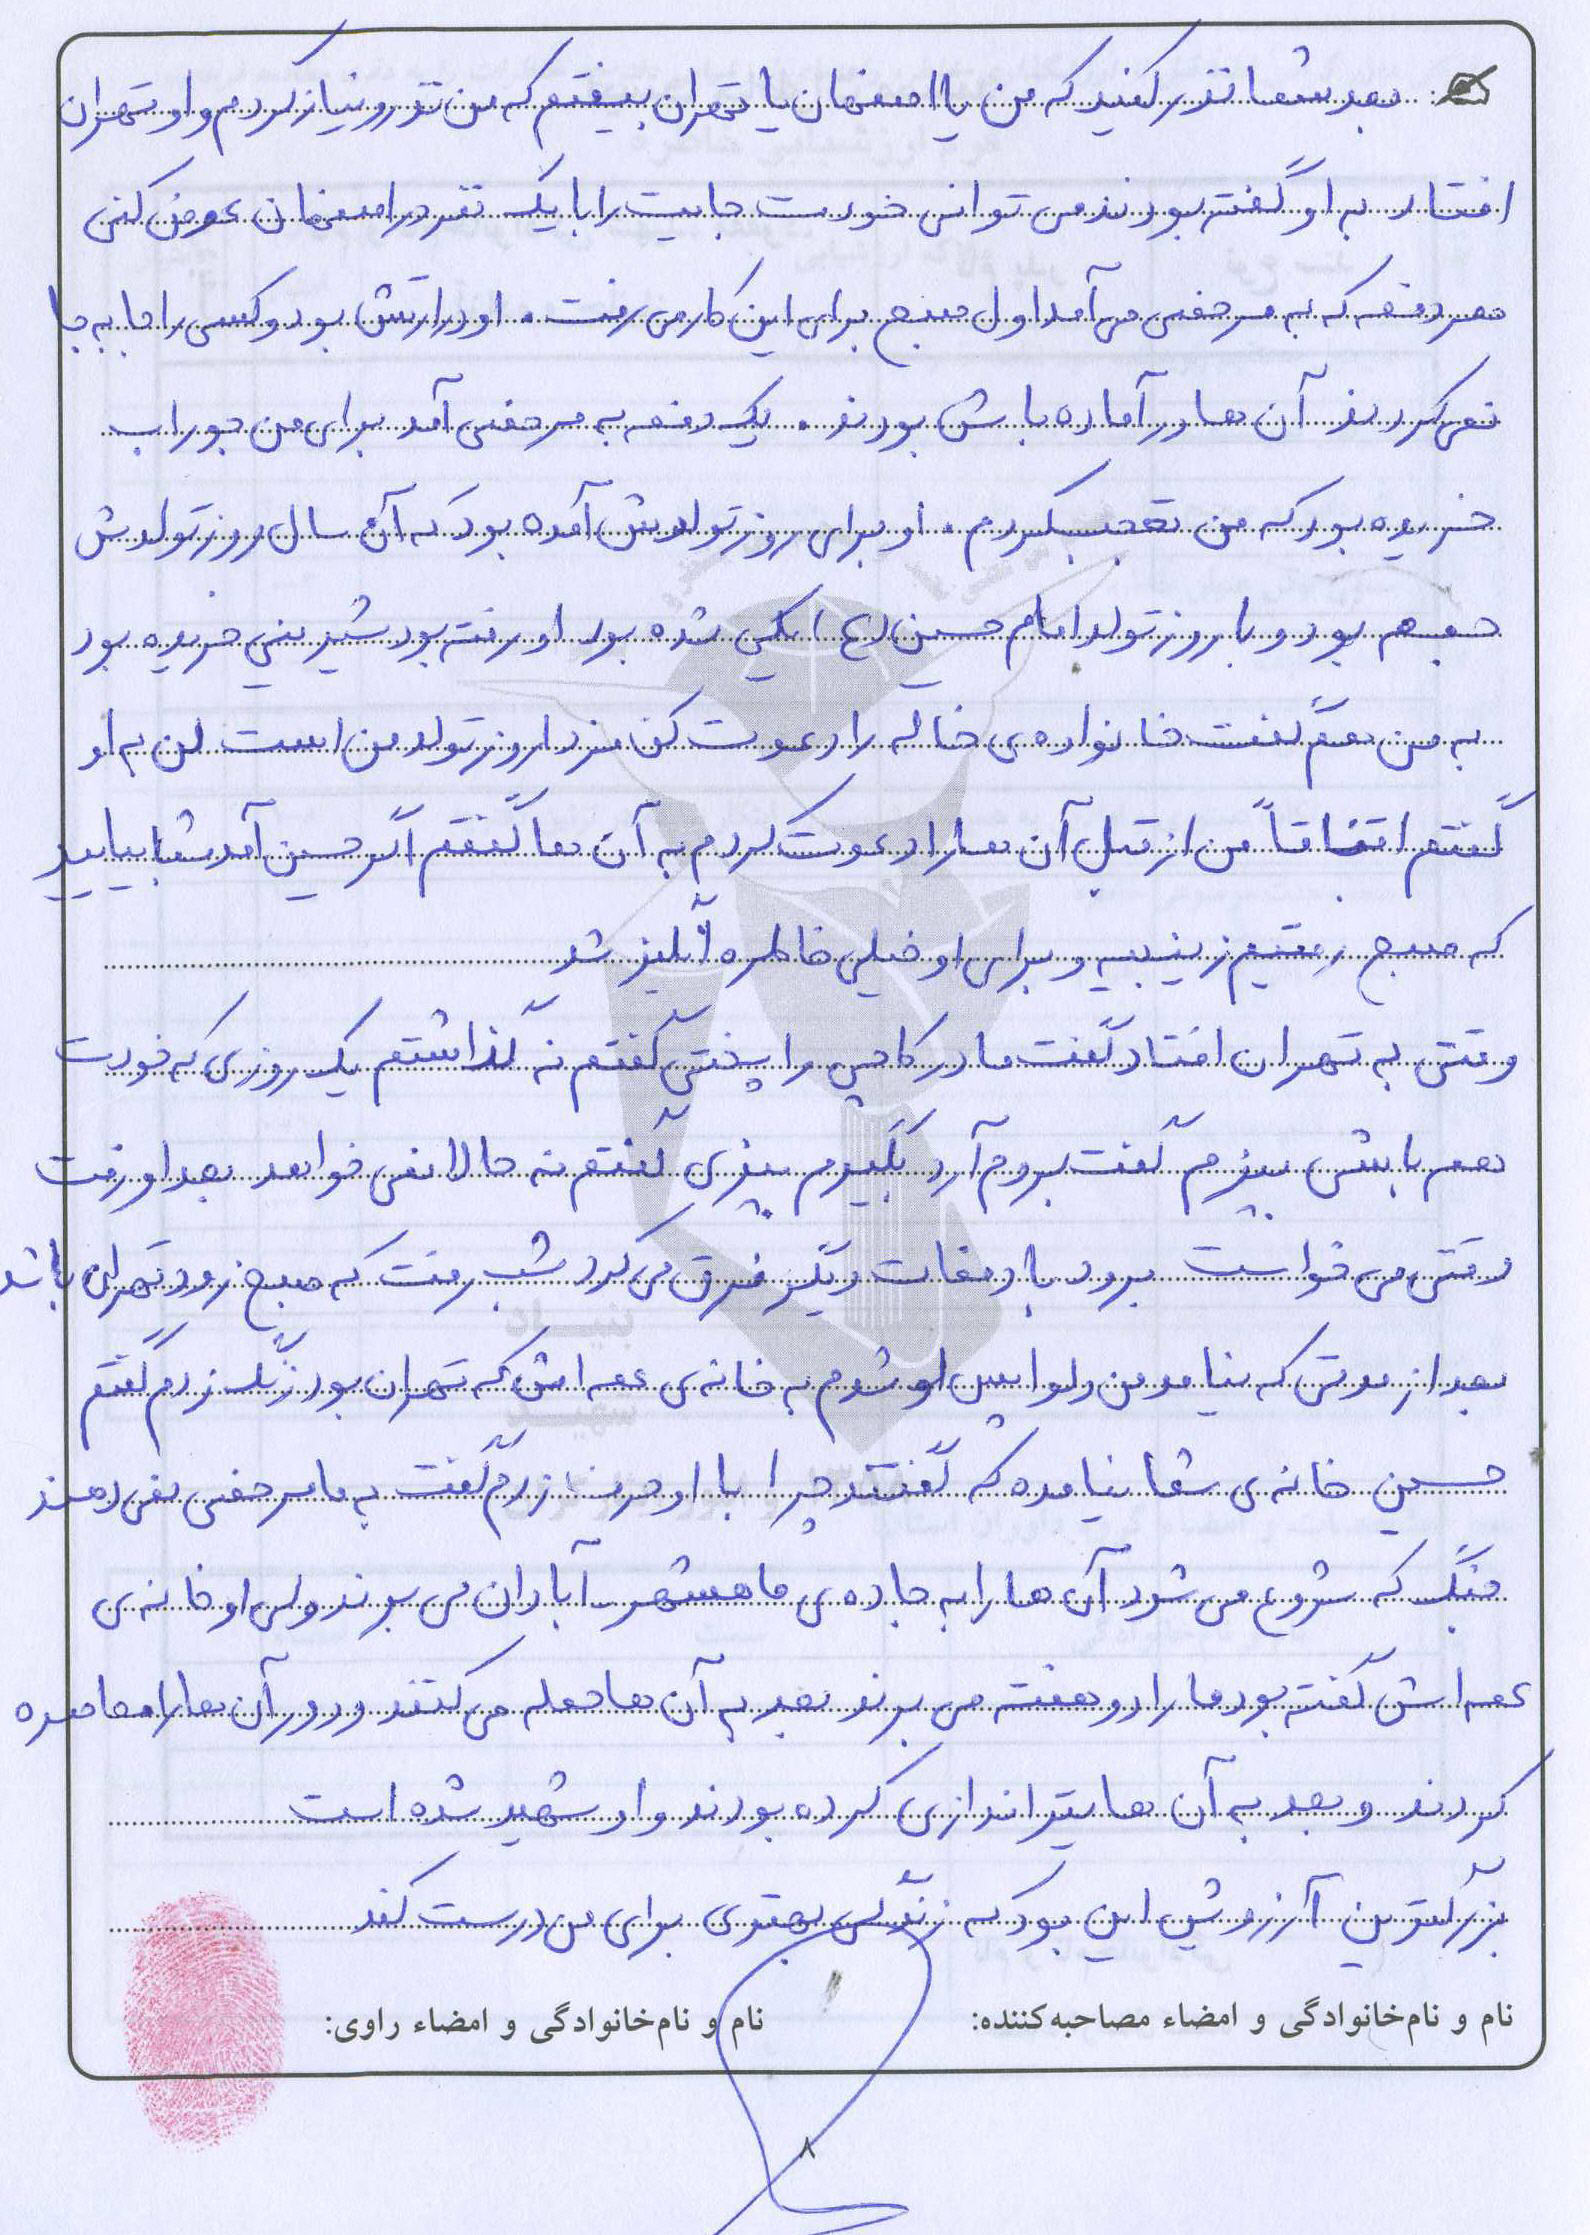 بعد شما نذر کنید که من یا اصفهان یا تهران بیفتم که من نذر و نیاز کردم و او تهران
افتاد. به او گفته بودند می توانی خودت جایت را با یک نفر در اصفهان عوض کنی
هر دفعه که به مرخصی می آمد اول صبح برای این کار می رفت. او در ارتش بود و کسی را جا به جا
نمی کردند. آن ها در آماده باش بودند. یک دفعه به مرخصی آمد برای من جوراب
خریده بود که من تعجب کردم. او برای روز تولدش آمده بود که آن سال روز تولدش
جمعه بود و با روز تولد امام حسین (ع) یکی شده بود او رفته بود شیرینی خریده بود
به من هم گفت خانواده ی خاله را دعوت کن فردا روز تولد من است من به او
گفتم اتفاقاً من از قبل آن ها را دعوت کردم به آن ها گفتم اگر حسین آمد شما بیایید
که صبح رفتیم زینبیه و برای او خیلی خاطره انگیز شد
وقتی به تهران افتاد گفت مادر کاچی را پختی گفتم نه گذاشتم یک روزی که خودت
هم باشی بپزم گفت بروم آرد بگیرم بپزی گفتم نه حالا نمی خواهد بعد او رفت
وقتی می خواست برود با دفعات دیگر فرق می کرد شب رفت که صبح زود تهران باشد
بعد از مدتی که نیامد من دلواپس او شدم به خانه ی عمه اش که تهران بود زنگ زدم گفتم
حسین خانه ی شما نیامده که گفتند چرا با او حرف زدم گفت به ما مرخصی نمی دهند
جنگ که شروع می شود آن ها را به جاده ی ماهشهر آبادان می برند ولی او خانه ی
عمه اش گفته بود ما را دو هفته می برند بعد به آن ها حمله می کنند و دور آن ها را محاصره
کردند و بعد به آن ها تیراندازی کرده بودند و او شهید شده است
بزرگترین آرزویش این بود که زندگی بهتری برای من درست کند
نام و نام‌خانوادگی و امضاء مصاحبه‌کننده: نام و نام‌خانوادگی و امضاء راوی:
۸